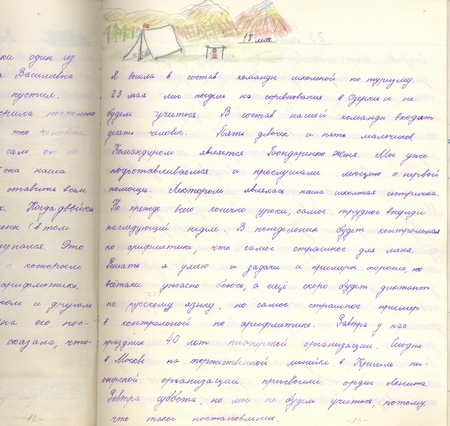 ки один из
Василевна
пустил.
сам он не
она наша
оставить всем
к. Когда двойки
ены (в том
Это
с которого
арифметике.
и другом
на его пос-
оказала, что-
18 мая.
Я вошла в состав команды школьной по туризму.
23 мая мы поедем на соревнования в Озерки и не
будем учиться. В состав нашей команды входят
десять человек. Пять девочек и пять мальчиков
Командиром является Бондаренко Женя. Мы уже
подготавливаемся и прослушали лекцию о первой
помощи. Лектором являлась наша школьная сестричка.
Но прежде всего конечно уроки, самое трудное впереди
последующий неделе. В понедельник будет контрольная
по арифметике, что самое страшное для меня.
Решать я умею и задачи и примеры хорошо, но
всётаки ужасно боюсь, а ещё скоро будет диктант
по русскому языку, но самое страшное пример
в контрольной по арифметике. Завтра у нас
праздник 40 лет пионерской организации. Сегодня
в Москве на торжественной линейке в Кремле пи-
онерской организации присвоили орден Ленина.
Завтра суббота, но мы не будем учиться, потому
что такое постановление.